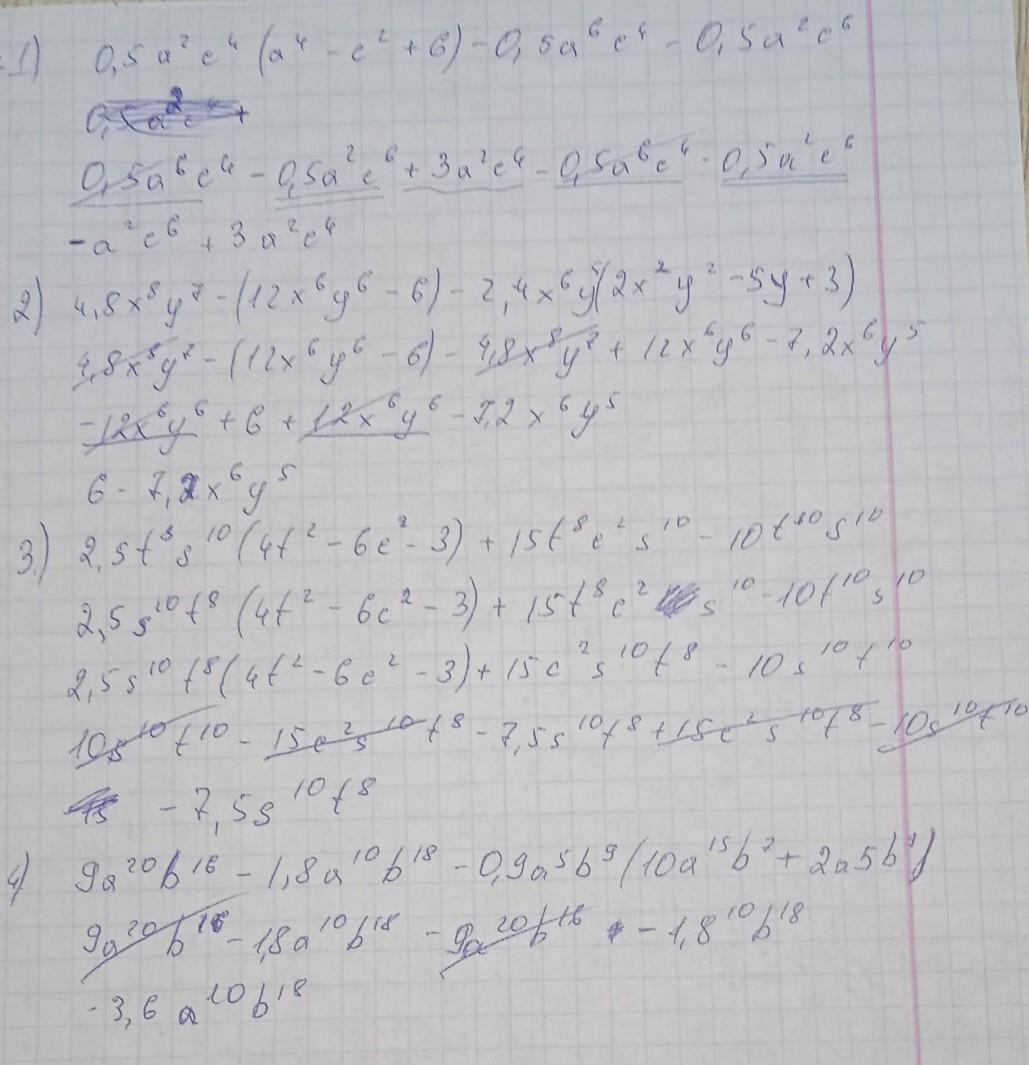 1) 0,5a²c⁴ (a⁴ - c² + 6) - 0,5a⁶c⁴ - 0,5a²c⁶
0,5a⁶c⁴ - 0,5a²c⁶ + 3a²c⁴ - 0,5a⁶c⁴ - 0,5a²c⁶
-a²c⁶ + 3a²c⁴
2) 4,8x⁸y⁷ - (12x⁶y⁶ - 6) - 2,4x⁶y⁵(2x²y² - 5y + 3)
4,8x⁸y⁷ - (12x⁶y⁶ - 6) - 4,8x⁸y⁷ + 12x⁶y⁶ - 7,2x⁶y⁵
-12x⁶y⁶ + 6 + 12x⁶y⁶ - 7,2x⁶y⁵
6 - 7,2x⁶y⁵
3.) 2,5t⁸s¹⁰(4t² - 6c² - 3) + 15t⁸c²s¹⁰ - 10t¹⁰s¹⁰
2,5s¹⁰t⁸ (4t² - 6c² - 3) + 15t⁸c² s¹⁰ - 10t¹⁰s¹⁰
2,5s¹⁰t⁸(4t² - 6c² - 3) + 15c²s¹⁰t⁸ - 10s¹⁰t¹⁰
10s¹⁰t¹⁰ - 15c²s¹⁰t⁸ - 7,5s¹⁰t⁸ + 15c²s¹⁰t⁸ - 10s¹⁰t¹⁰
- 7,5s¹⁰t⁸
4) 9a²⁰b¹⁶ - 1,8a¹⁰b¹⁸ - 0,9a⁵b⁹(10a¹⁵b⁷ + 2a5b⁹)
9a²⁰b¹⁶ - 1,8a¹⁰b¹⁸ - 9a²⁰b¹⁶ - 1,8¹⁰b¹⁸
-3,6a¹⁰b¹⁸